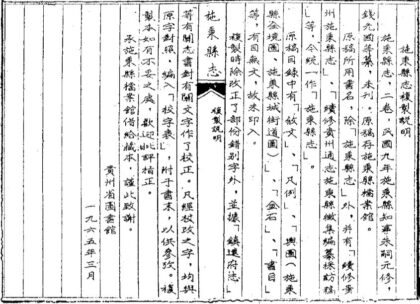 施秉縣志複製說明
施秉縣志，二卷，民國九年施秉縣知事朱嗣元修，
錢光國等纂，未刊。原稿存施秉縣檔案館。
原稿所用書名，除「施秉縣志」外，并有「續修貴
州施秉縣志」、「續修貴州通志施秉縣徵集編纂採訪稿
」等，今統一作「施秉縣志」。
原稿目錄中有「敘文」、「凡例」、「輿圖（施秉
縣全境圖、施秉縣城街道圖）」、「金石」、「書目」
等，有目無文，故未印入。
複製時除改正了部份錯別字外，並據「鎮遠府志」
施秉縣志
複製說明
等有關志書對有關文字作了校正。凡經校改之字，均與
原字對照，編入「校字表」，附于書末，以供參攷。複
製本如有不妥之處，歡迎批評指正。
承施秉縣檔案館借給稿本，謹此致謝。
貴州省圖書館
一九六五年三月